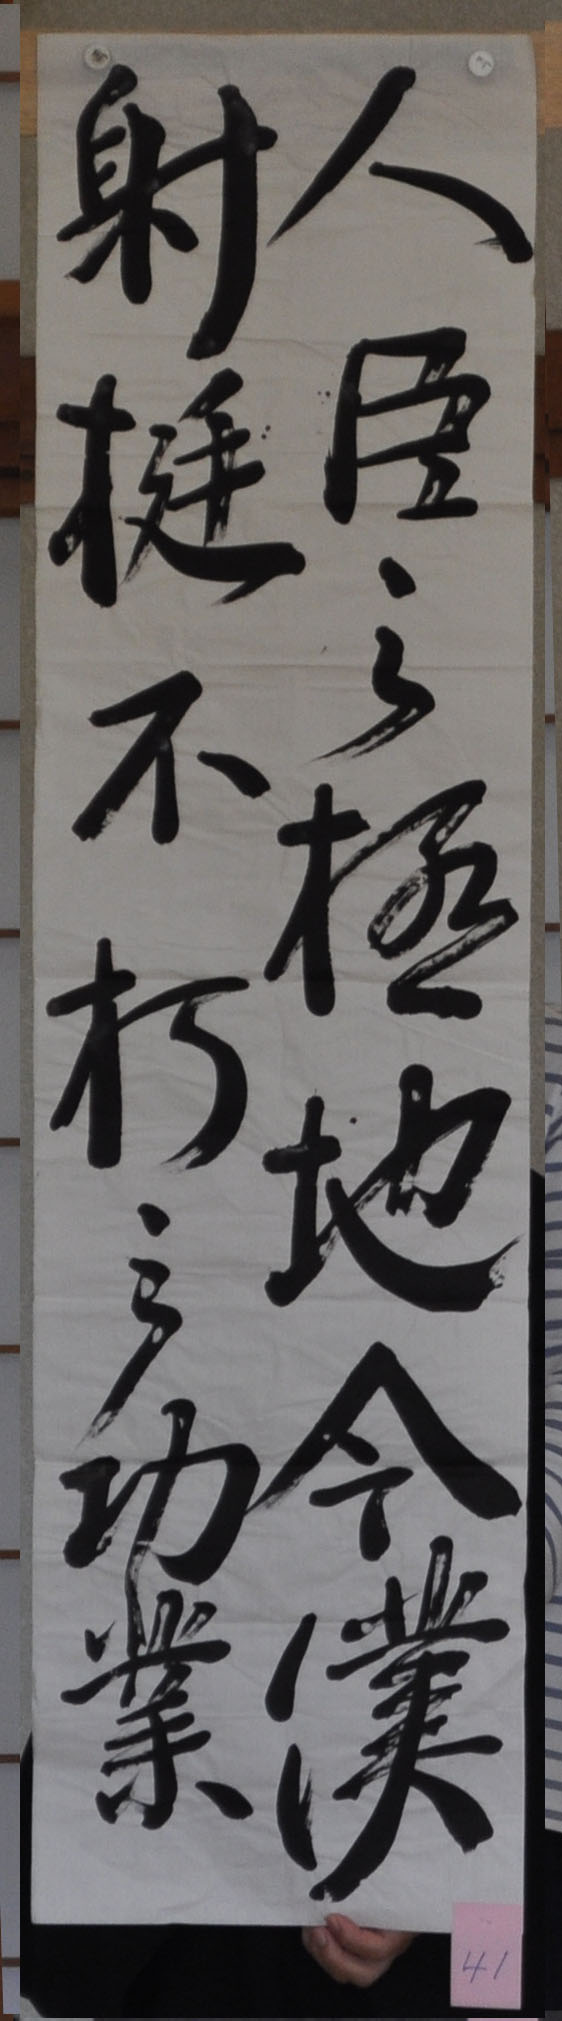 人臣之極地今僕
射挺不朽之功業
41